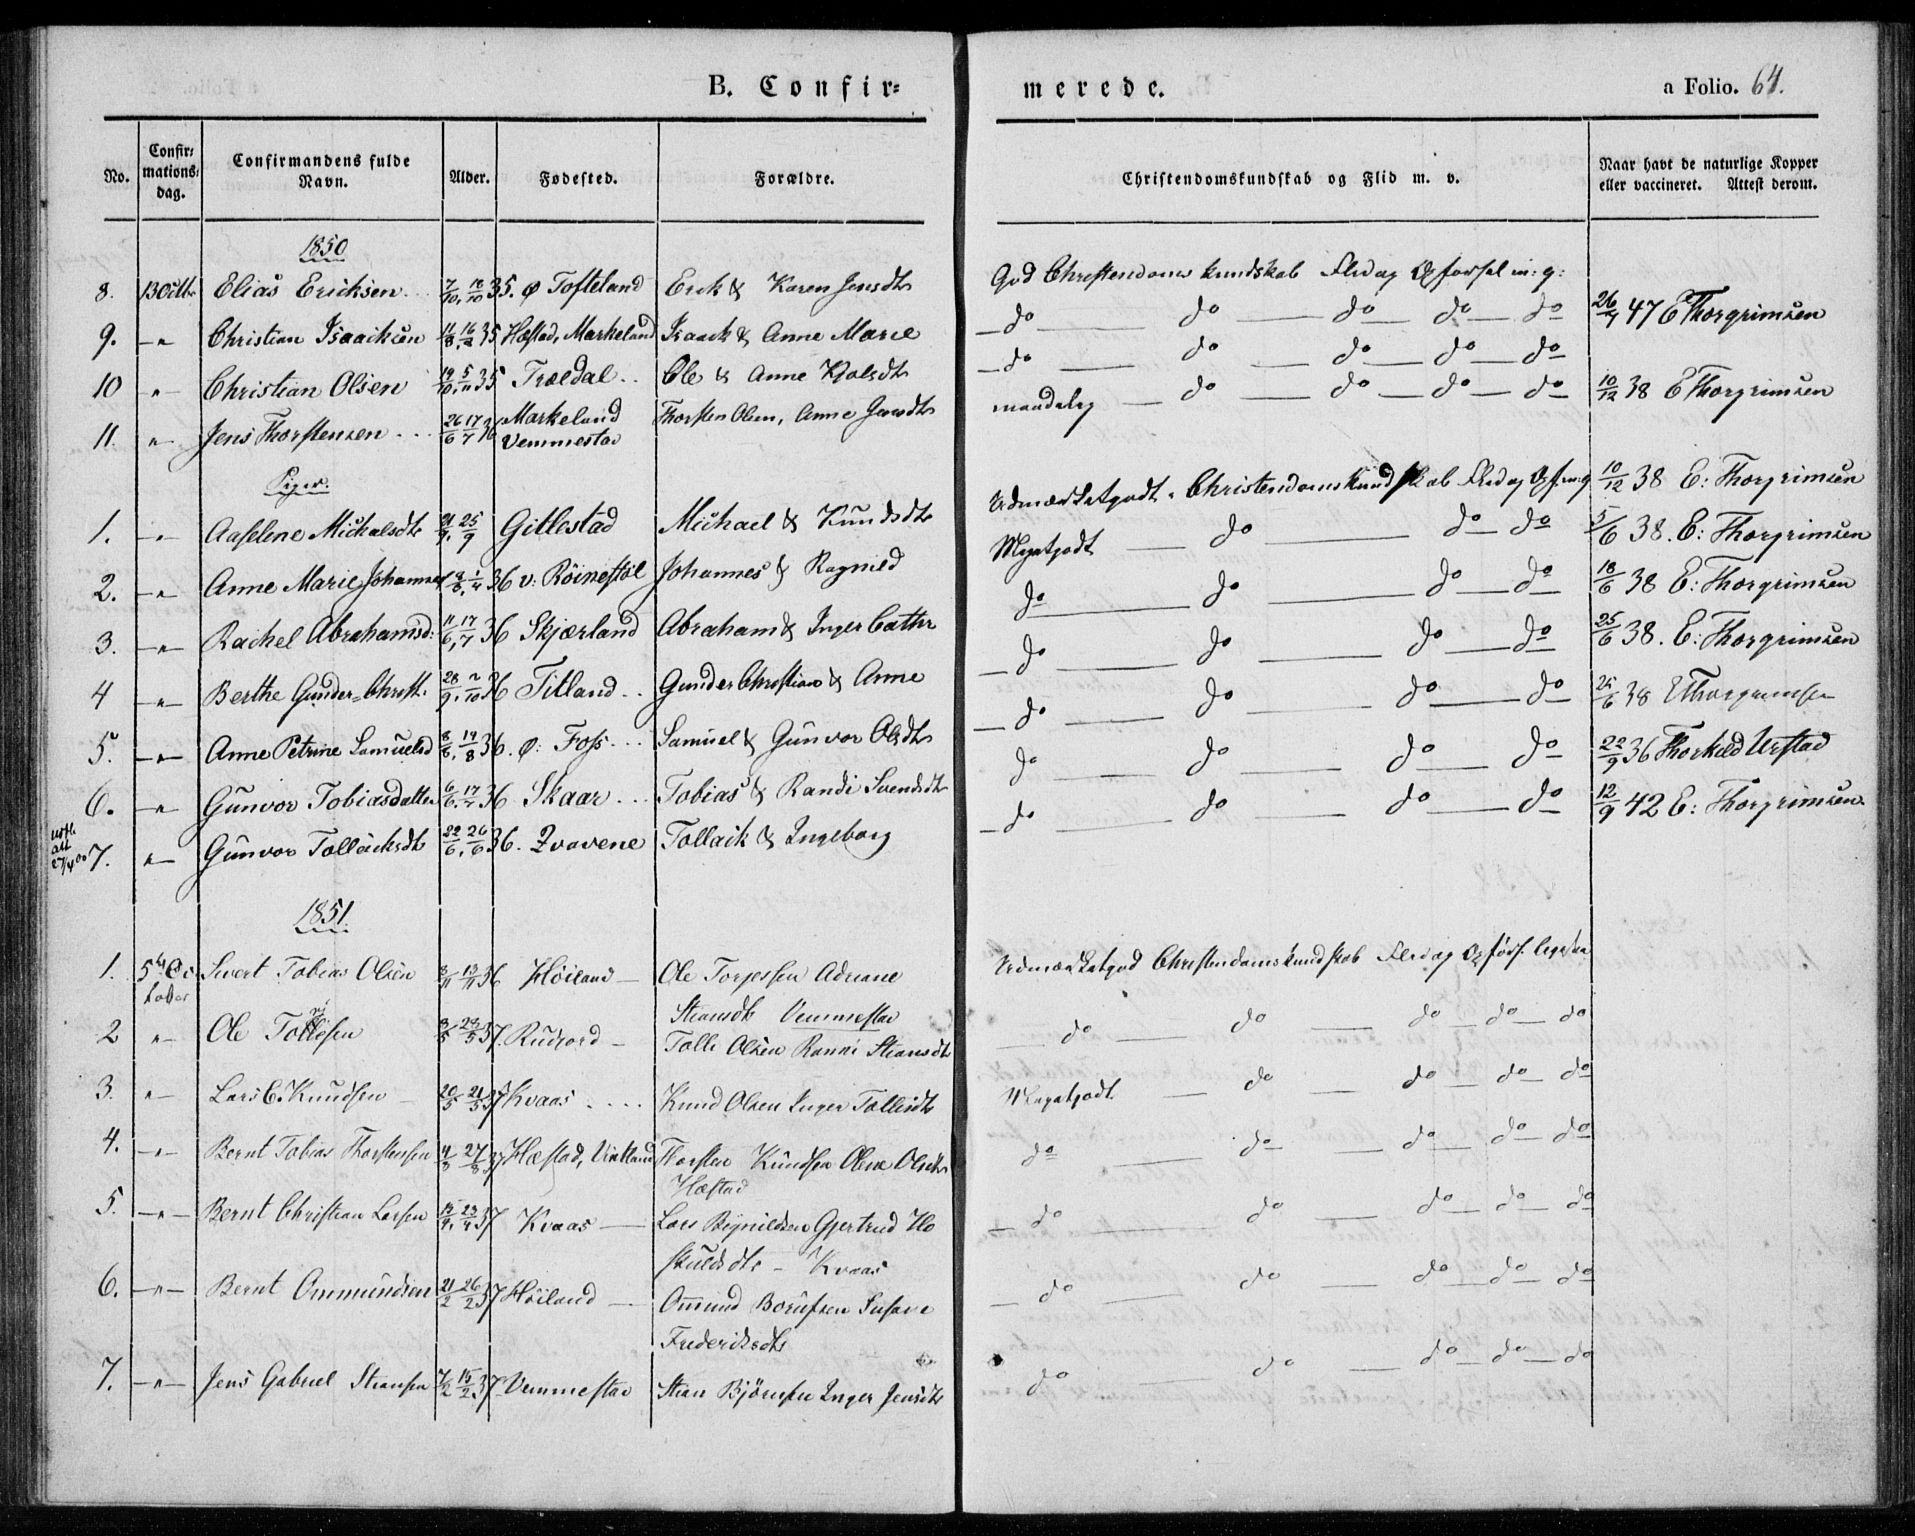 B. Confir= merede. a Folio. 64.
No. Confir=mations=dag. Confirmandens fulde Navn. Alder. Fødested. Forældre. Christendomskundskab og Flid m. v. Naar havt de naturlige Kopper eller vaccineret. Attest derom.
1850
8. 13 Octbr Elias Ericksen 7/10, 18/10 35. ø Tofteland Erek & Karen Jensdtr God Christendoms kundskab Flid og Opførsel m: g:
9. -"- Christian Isaacksen 11/8, 16/2 35 Hæstad, Markeland Isaack & Anne Marie - do - do - do - do - do 26/7 47 E Thorgrimsen
10 -"- Christian Olsen 19/10, 5/11 35 Trældal .. Ole & Anne - do - do - do - do - do
11. -"- Jens Thorstensen ... 26/6 17/7 36 Markeland Vemmestad Thorsten Olsen, Anne Jensdtr maadelig - do - do - do - do 10/12 38 E Thorgrimsen
Piger.
1. -"- Aaselene Michalsdtr 21/9, 25/9 Gitlestad Michael & Knudsdtr Udmærketgodt Christendomskundskab Flid og Opf. m: g 10/12 38 E: Thorgrimsen
2. -"- Anne Marie Johannes 1/4 36 v: Röinestöl Johannes & Ragnild Megetgodt - do - do - do 5/6 38. E: Thorgrimsen
3. -"- Rachel Abrahamsd: 11/6, 17/7 36 Skjærland Abraham & Inger Cathr do - do - do - do 18/6 38 E: Thorgrimsen
4 -"- Berthe Gunder=Christ: 28/9, 2/10 36 Titland .. Gunder Christian & Anne - do - do - do - do 25/6 38. E: Thorgrimsen
5. -"- Anne Petrine Samuelsd 8/8, 14/8 36. ø: Foss ... Samuel & Gunvor Olsdtr - do - do - do - do 25/6 38 E Thorgrimsen
6. -"- Gunvor Tobiasdatter 6/6, 17/7 36 Skaar ... Tobias & Randi Svendsdtr do - do - do - do 22/9 36 Thorkild Urstad
7. -"- Gunvor Tollacksdtr 22/6, 26/6 36. Qvavene Tollack & Ingeborg - do - do - do - do 12/9 42 E: Thorgrimsen
att
27/4 00
1851.
1. 5te October Sivert Tobias Olsen 8/11 13/11 36 Höiland - Ole Torjessen Adriane Udmærketgod Christendomskundskab Flid og Opførs.
Stiansdtr Vemmestad
2 "- Ole Tollefsen 8/5 24/5 37. Rudjord - Tolle Olsen Ranni Stiansdtr - do - do - do - do - do
3. "- Lars C. Knudsen - 20/5 21/5 37 Kvaas .... Knud Olsen Inger Tollesdtr Megetgodt - do - do - do - do
4. -"- Bernt Tobias Thorstensen 4/8 27/8 37 Hæstad, Thorsten Knudsen Olene Olsdtr do - do - do - do - do
Hæstad
5. -"- Bernt Christian Larsen 15/4, 23/4 37 Kvaas - Lars Reinildsen Gjertrud Ho - do - do - do - do - do
skuldsdtr - Kvaas
6. -"- Bernt Ommundsen 21/2 26/2 37 Höiland - Omund Borufsen Susane - do - do - do - do - do
Frederiksdtr
7. -"- Jens Gabriel Stiansen 7/2 15/2 37 Vemmestad Stian Björnsen Inger Jensdtr do - do - do - do - do